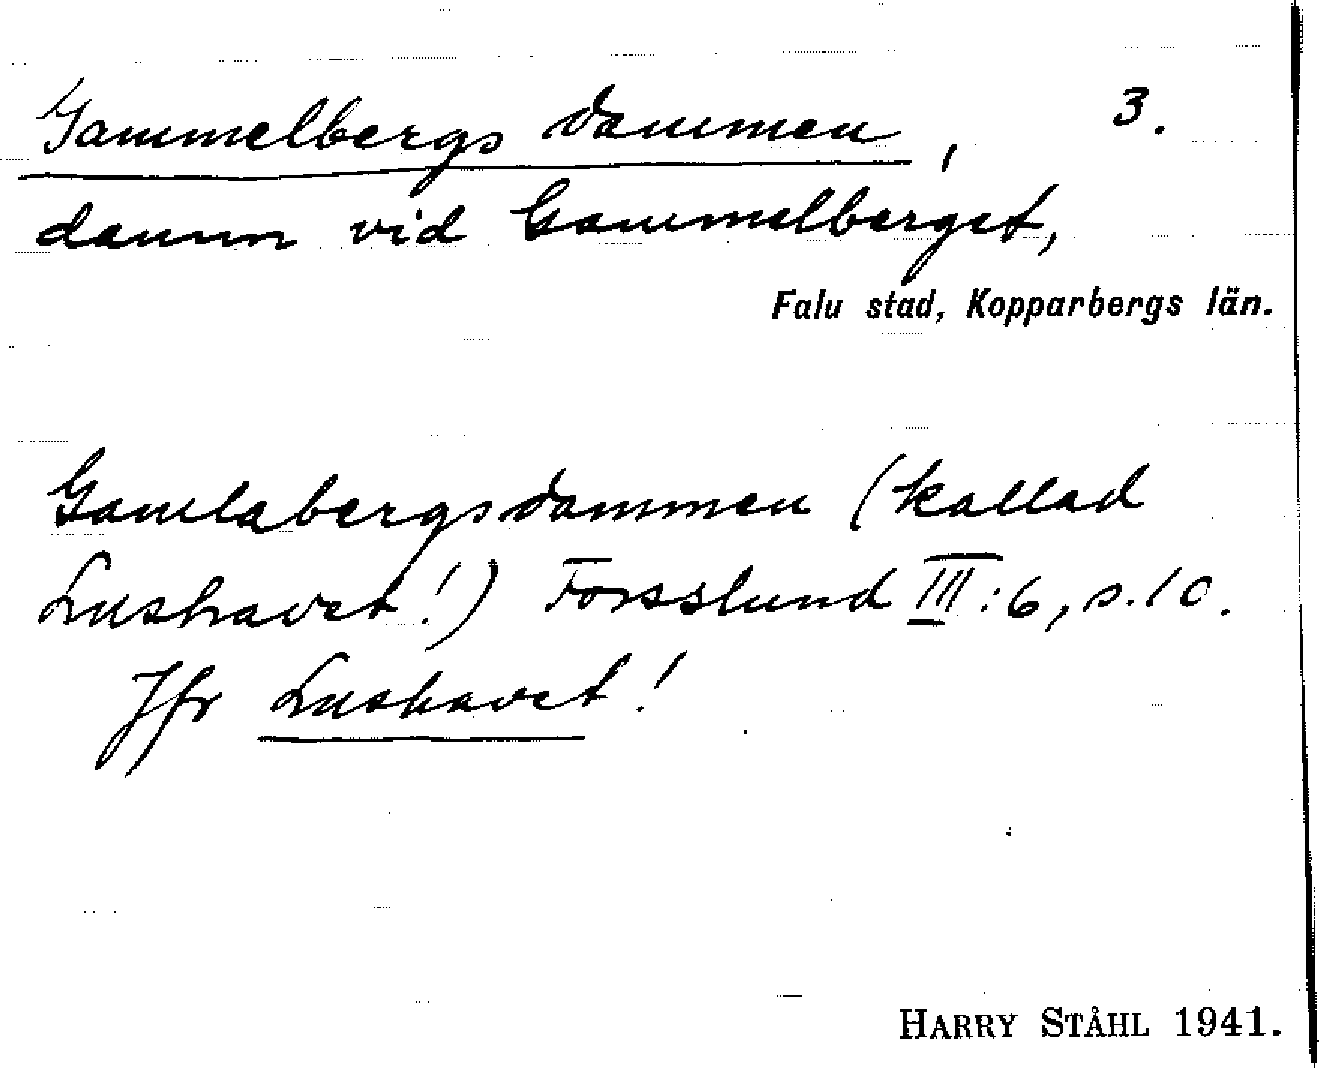 Gammelbergs dammen, 3.
damm vid Gammelberget,
Falu stad, Kopparbergs län.
Gamlabergsdammen (kallad
Lushavet!) Forsslund III:6, s. 10.
Jfr Lushavet!
HARRY STÅHL 1941.